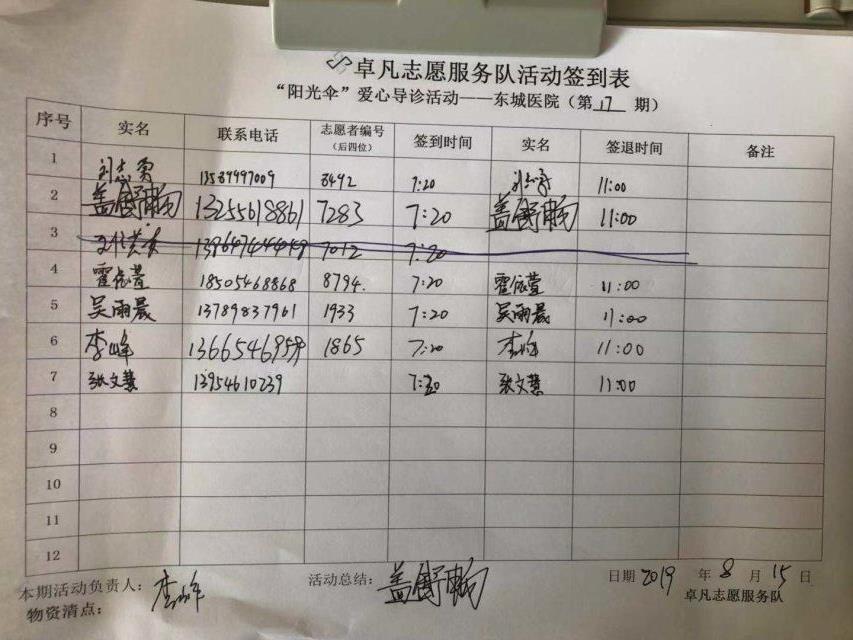 卓凡志愿服务队活动签到表
“阳光伞”爱心导诊活动——东城医院（第 17 期）
序号 实名 联系电话 志愿者编号（后四位） 签到时间 实名 签退时间 备注
1 刘志勇 13589997009 8492 7:20 刘志勇 11:00
2 盖舒畅 13255618861 7283 7:20 盖舒畅 11:00
3 7012 7:20
4 霍依萱 18505468868 8794. 7:20 霍依萱 11:00
5 吴雨晨 13789837961 1933 7:20 吴雨晨 11:00
6 李峰 1865 7:20 李峰 11:00
7 张文慧 13954610239 7:20 张文慧 11:00
8
9
10
11
12
本期活动负责人：李峰 活动总结：盖舒畅 日期 2019 年 8 月 15 日
物资清点： 卓凡志愿服务队